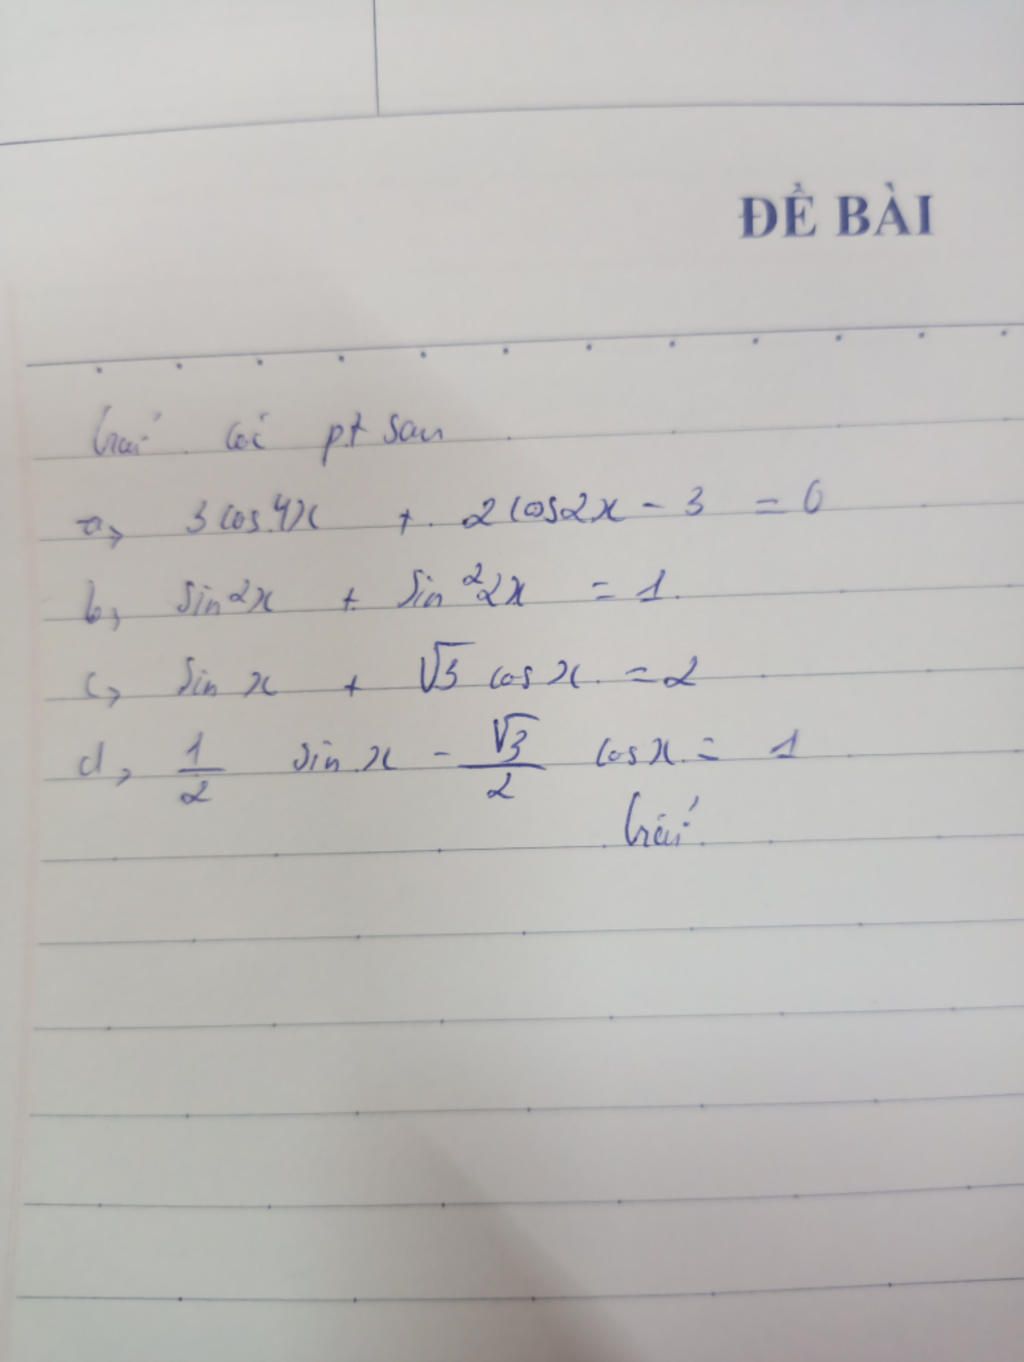 ĐỀ BÀI
Giải các pt sau
a, 3 cos 4x + 2 cos2x - 3 = 0
b, sin2x + sin²2x = 1.
c, sin x + √3 cos x = 2
d, 1/2 sin x - √3/2 cos x = 1
Giải